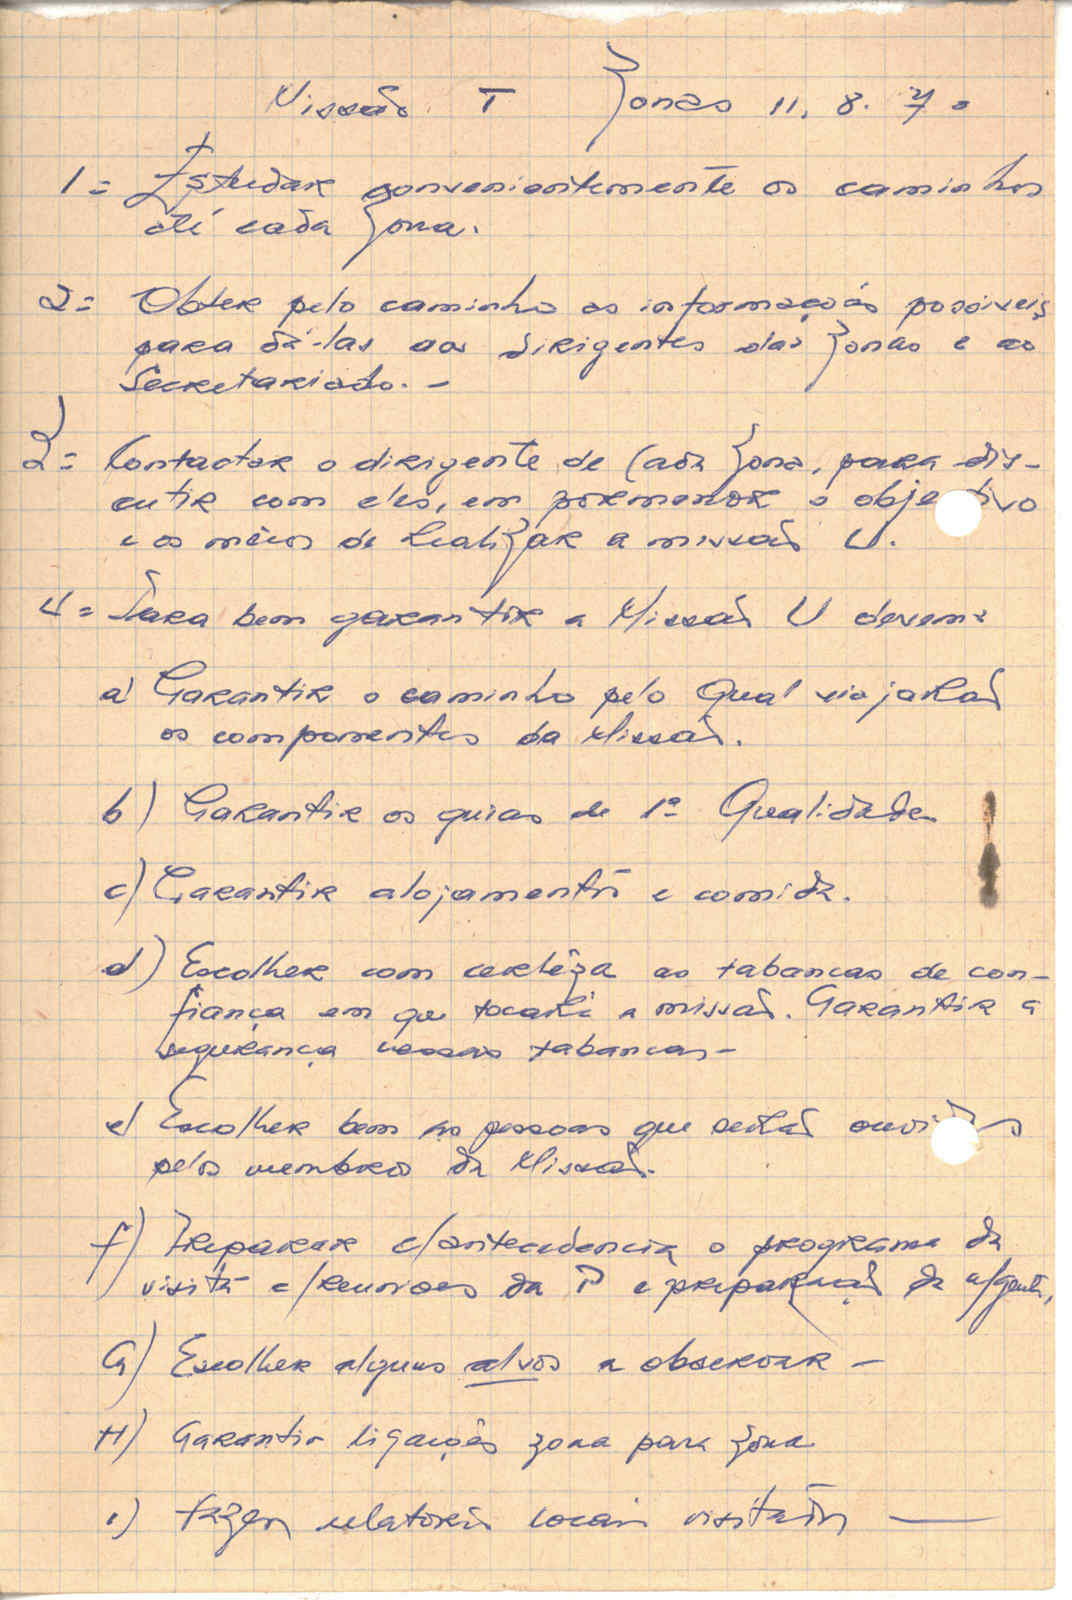 Missão T Zonas 11. 8. 70
1= Estudar convenientemente os caminhos
até cada Zona.
2= Obter pelo caminho as informações possiveis
para dá-las aos dirigentes das Zonas e ao
Secretariado. -
3= Contactar o dirigente de Cada Zona, para dis-
cutir com eles, em pormenor o objectivo
e os meios de Realizar a missão U.
4= Para bem garantir a Missão U devem:
a) Garantir o caminho pelo Qual viajarão
os componentes da Missão.
b) Garantir os guias de 1ª Qualidade
c) Garantir alojamento e comida.
d) Escolher com certêza as tabancas de con-
fiança em que tocará a missão. Garantir a
segurança nessas tabancas -
e) Escolher bem as pessoas que serão ouvidas
pelos membros da Missão.
f) Preparar c/antecedencia o programa da
visita c/reuniões da P e preparação da n/gente,
G) Escolher alguns alvos a observar -
H) Garantir ligações zona para zona
i) fazer relatorio locais visitados